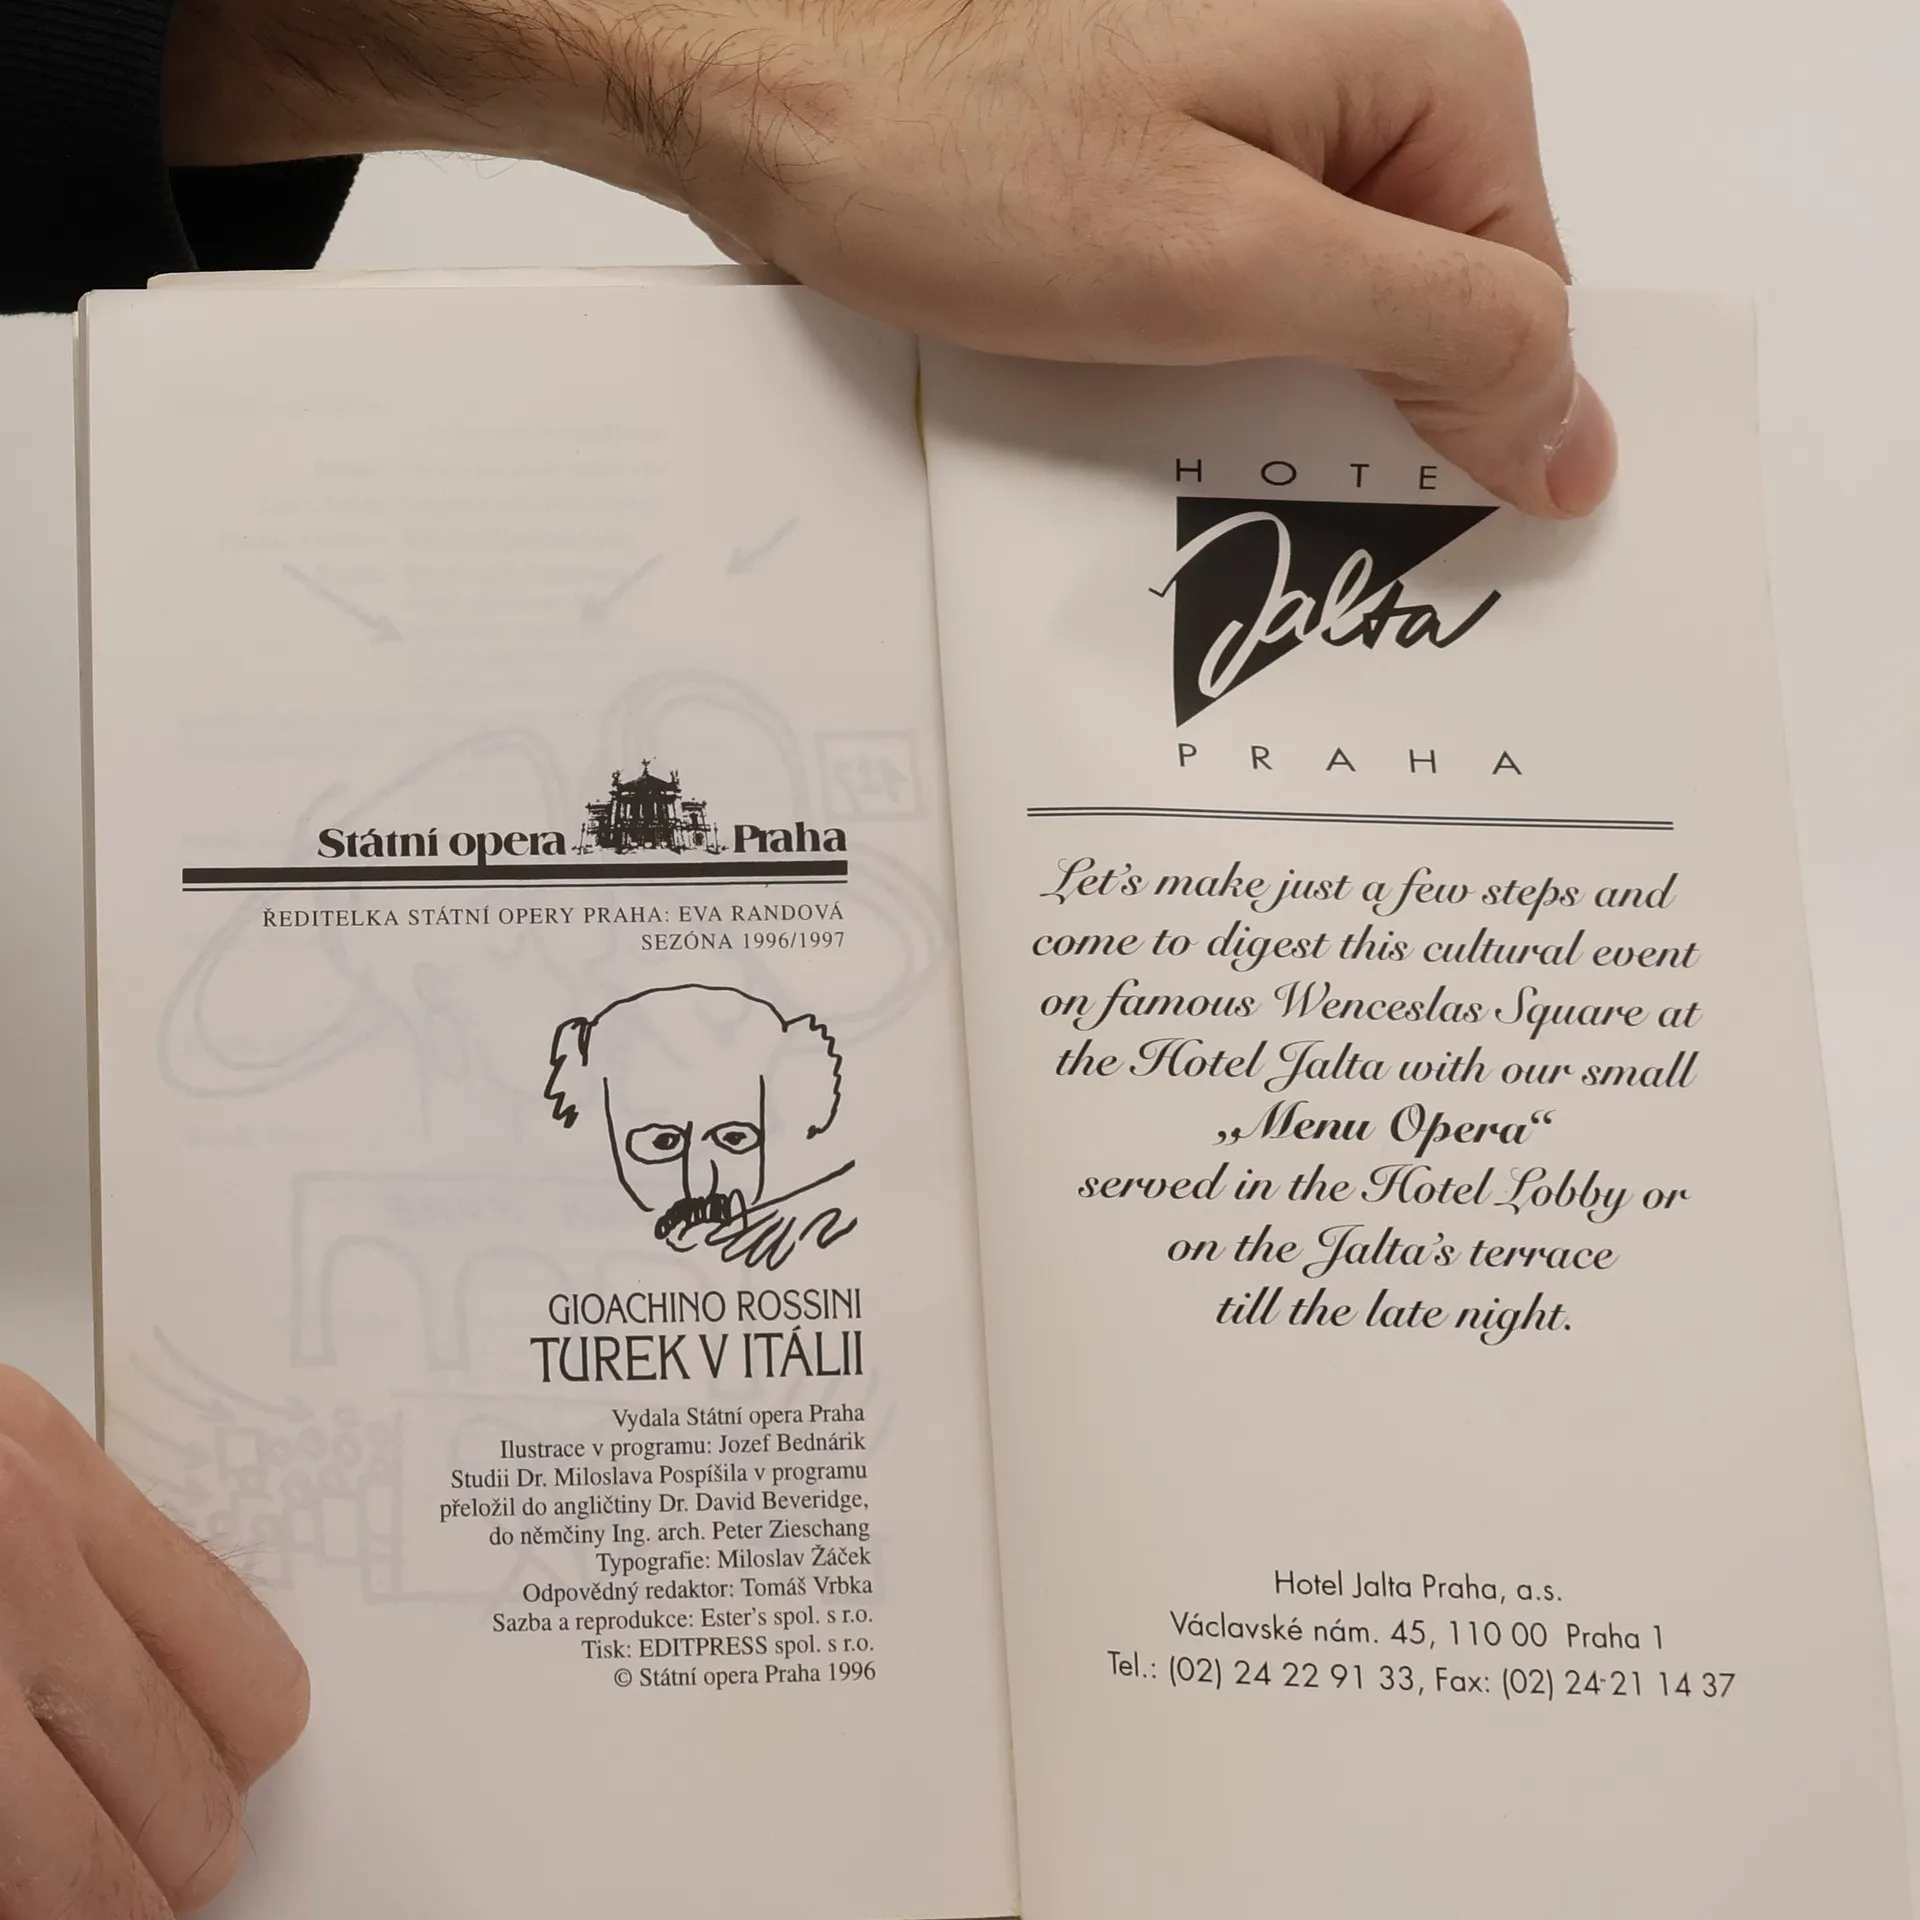 Státní opera Praha
ŘEDITELKA STÁTNÍ OPERY PRAHA: EVA RANDOVÁ
SEZÓNA 1996/1997
GIOACHINO ROSSINI
TUREK V ITÁLII
Vydala Státní opera Praha
Ilustrace v programu: Jozef Bednárik
Studii Dr. Miloslava Pospíšila v programu
přeložil do angličtiny Dr. David Beveridge,
do němčiny Ing. arch. Peter Zieschang
Typografie: Miloslav Žáček
Odpovědný redaktor: Tomáš Vrbka
Sazba a reprodukce: Ester's spol. s r.o.
Tisk: EDITPRESS spol. s r.o.
© Státní opera Praha 1996
HOTE
Jalta
PRAHA
Let's make just a few steps and
come to digest this cultural event
on famous Wenceslas Square at
the Hotel Jalta with our small
„Menu Opera“
served in the Hotel Lobby or
on the Jalta's terrace
till the late night.
Hotel Jalta Praha, a.s.
Václavské nám. 45, 110 00 Praha 1
Tel.: (02) 24 22 91 33, Fax: (02) 24 21 14 37